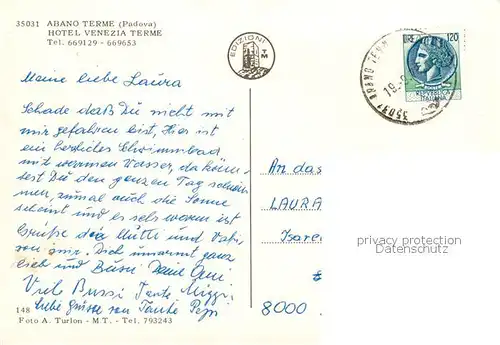 35031 ABANO TERME (Padova)
HOTEL VENEZIA TERME
Tel. 669129 - 669653
EDIZIONI
TM
LIRE 120
REPVBBLICA
ITALIANA
35031 ABANO TERME
19
Meine liebe Laura
Schade daß Du nicht mit
mir gefahren bist, Hier ist
ein herrliches Schwimmbad
mit warmen Wasser, da könn=
test Du den ganzen Tag schwim
men, zumal auch die Sonne
scheint und es sehr warm ist
Grüße die Mutti und Vati,
von mir. Dich umarmt ganz
lieb und Bussi Deine Omi
Viele Bussi Tante Mizzi
Liebe Grüsse von Tante Pepi
An das
LAURA
Isare
8000
privacy protection
Datenschutz
148
Foto A. Turlon - M.T. - Tel. 793243